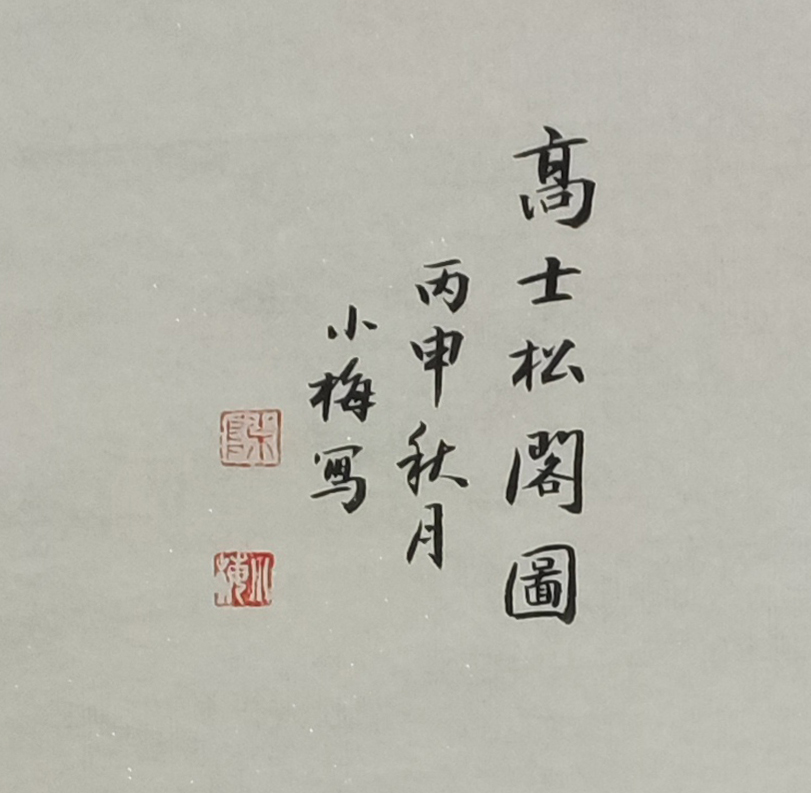 高士松閣圖
丙申秋月
小梅写
小梅